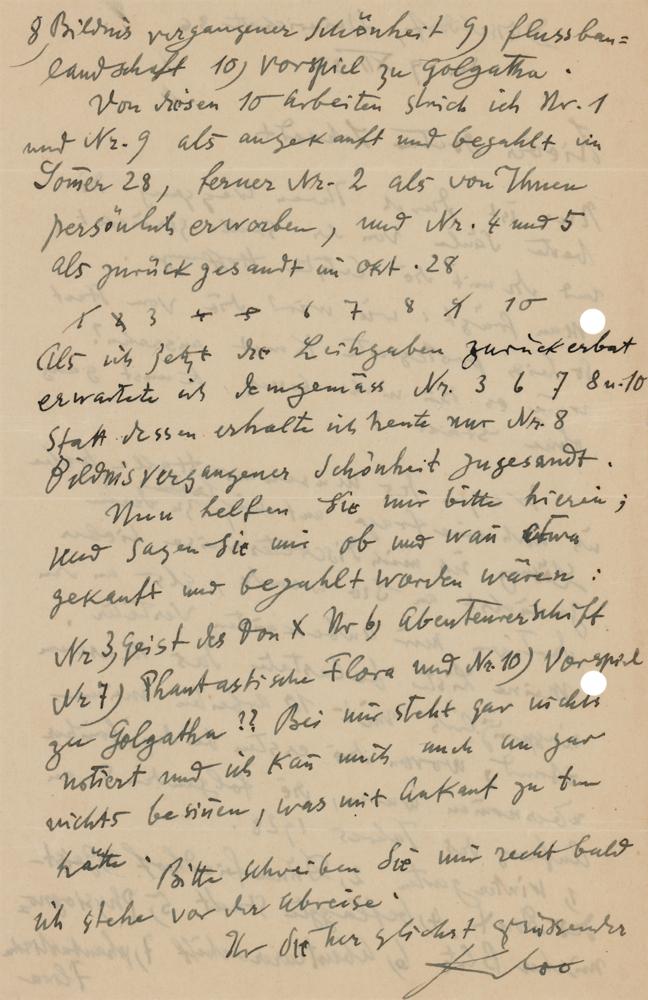 8) Bildnis vergangener Schönheit 9) flussbau=
landschaft 10) Vorspiel zu Golgatha.
Von diesen 10 Arbeiten strich ich Nr. 1
und Nr. 9 als angekauft und bezahlt im
Som̅er 28, ferner Nr. 2 als von Ihnen
persönlich erworben, und Nr. 4 und 5
als zurückgesandt im Okt. 28
1 2 3 4 5 6 7 8 9 10
Als ich jetzt die Leihgaben zurückerbat
erwartete ich demgemäss Nr. 3 6 7 8 u. 10
Statt dessen erhalte ich heute nur Nr. 8
Bildnis vergangener Schönheit zugesandt.
Nun helfen Sie mir bitte hierin;
und sagen Sie mir ob und wan̅ etwa
gekauft und bezahlt worden wären:
Nr 3, Geist des Don X Nr 6) Abenteurerschiff
Nr 7) Phantastische Flora und Nr. 10) Vorspiel
zu Golgatha?? Bei mir steht gar nichts
notiert und ich kan̅ mich auch an gar
nichts besin̅en, was mit Ankauf zu tun
hätte. Bitte schreiben Sie mir recht bald
ich stehe vor der Abreise.
Ihr Sie herzlichst grüssender